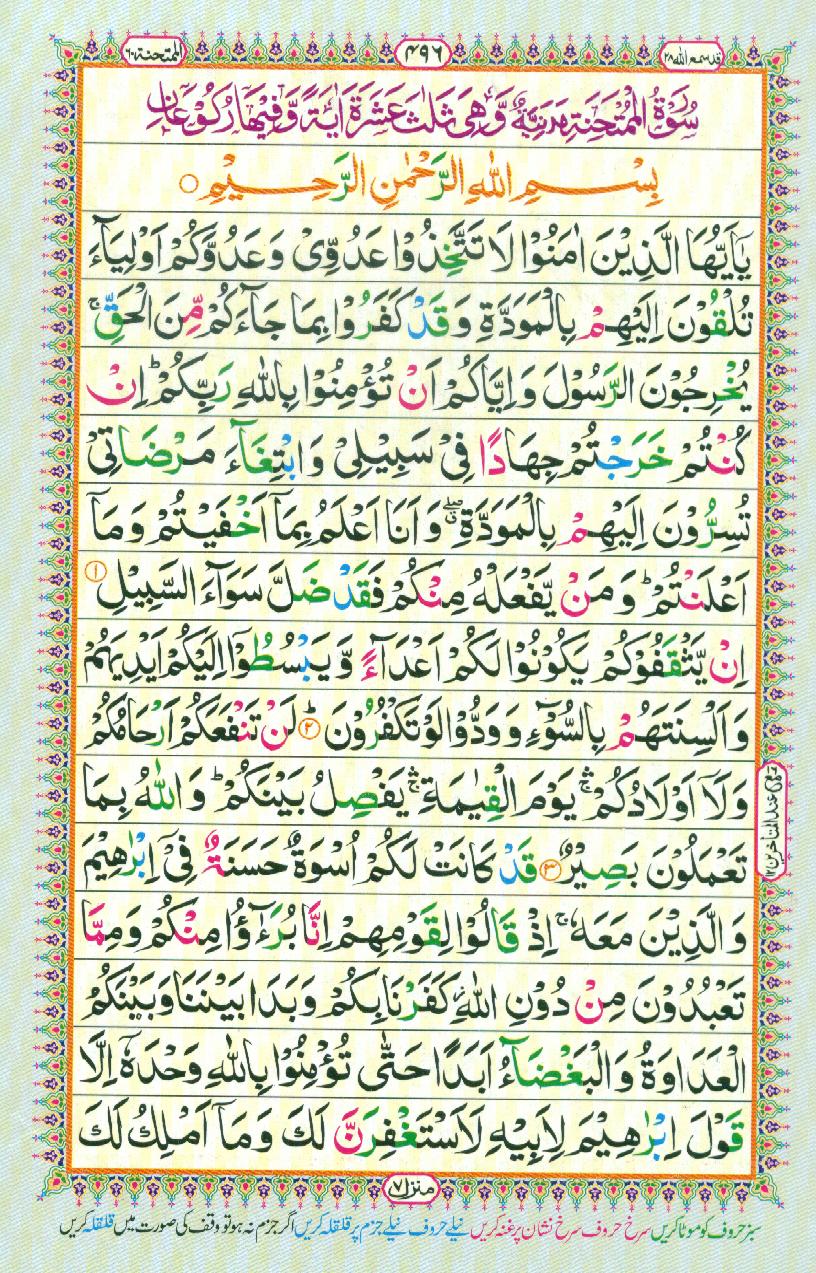 قد سمع الله ٢٨
٤٩٦
الممتحنة ٦٠
سُوْرَةُ الْمُمْتَحِنَةِ مَدَنِيَّةٌ وَّهِيَ ثَلٰثَ عَشَرَةَ اٰيَةً وَّفِيْهَا رُكُوْعَانِ
بِسْمِ اللهِ الرَّحْمٰنِ الرَّحِيْمِ ○
يٰۤاَيُّهَا الَّذِيْنَ اٰمَنُوْا لَا تَتَّخِذُوْا عَدُوِّىْ وَعَدُوَّكُمْ اَوْلِيَآءَ
تُلْقُوْنَ اِلَيْهِمْ بِالْمَوَدَّةِ وَقَدْ كَفَرُوْا بِمَا جَآءَكُمْ مِّنَ الْحَقِّ ۚ
يُخْرِجُوْنَ الرَّسُوْلَ وَاِيَّاكُمْ اَنْ تُؤْمِنُوْا بِاللهِ رَبِّكُمْ ؕ اِنْ
كُنْتُمْ خَرَجْتُمْ جِهَادًا فِىْ سَبِيْلِىْ وَابْتِغَآءَ مَرْضَاتِىْ
تُسِرُّوْنَ اِلَيْهِمْ بِالْمَوَدَّةِ ۖ وَاَنَا اَعْلَمُ بِمَاۤ اَخْفَيْتُمْ وَمَاۤ
اَعْلَنْتُمْ ؕ وَمَنْ يَّفْعَلْهُ مِنْكُمْ فَقَدْ ضَلَّ سَوَآءَ السَّبِيْلِ ①
اِنْ يَّثْقَفُوْكُمْ يَكُوْنُوْا لَكُمْ اَعْدَآءً وَّيَبْسُطُوْۤا اِلَيْكُمْ اَيْدِيَهُمْ
وَاَلْسِنَتَهُمْ بِالسُّوْٓءِ وَوَدُّوْا لَوْ تَكْفُرُوْنَ ؕ② لَنْ تَنْفَعَكُمْ اَرْحَامُكُمْ
وَلَاۤ اَوْلَادُكُمْ ۛۚ يَوْمَ الْقِيٰمَةِ ۛۚ يَفْصِلُ بَيْنَكُمْ ؕ وَاللهُ بِمَا
تَعْمَلُوْنَ بَصِيْرٌ ③ قَدْ كَانَتْ لَكُمْ اُسْوَةٌ حَسَنَةٌ فِىْۤ اِبْرٰهِيْمَ
وَالَّذِيْنَ مَعَهٗ ۚ اِذْ قَالُوْا لِقَوْمِهِمْ اِنَّا بُرَءٰۤؤُا مِنْكُمْ وَمِمَّا
تَعْبُدُوْنَ مِنْ دُوْنِ اللهِ ؗ كَفَرْنَا بِكُمْ وَبَدَا بَيْنَنَا وَبَيْنَكُمُ
الْعَدَاوَةُ وَالْبَغْضَآءُ اَبَدًا حَتّٰى تُؤْمِنُوْا بِاللهِ وَحْدَهٗۤ اِلَّا
قَوْلَ اِبْرٰهِيْمَ لِاَبِيْهِ لَاَسْتَغْفِرَنَّ لَكَ وَمَاۤ اَمْلِكُ لَكَ
منزل ٧
سبز حروف کو موٹا کریں سرخ حروف سرخ نشان پر غنہ کریں نیلے حروف نیلے جزم پر قلقلہ کریں اگر جزم نہ ہو تو وقف کی صورت میں قلقلہ کریں